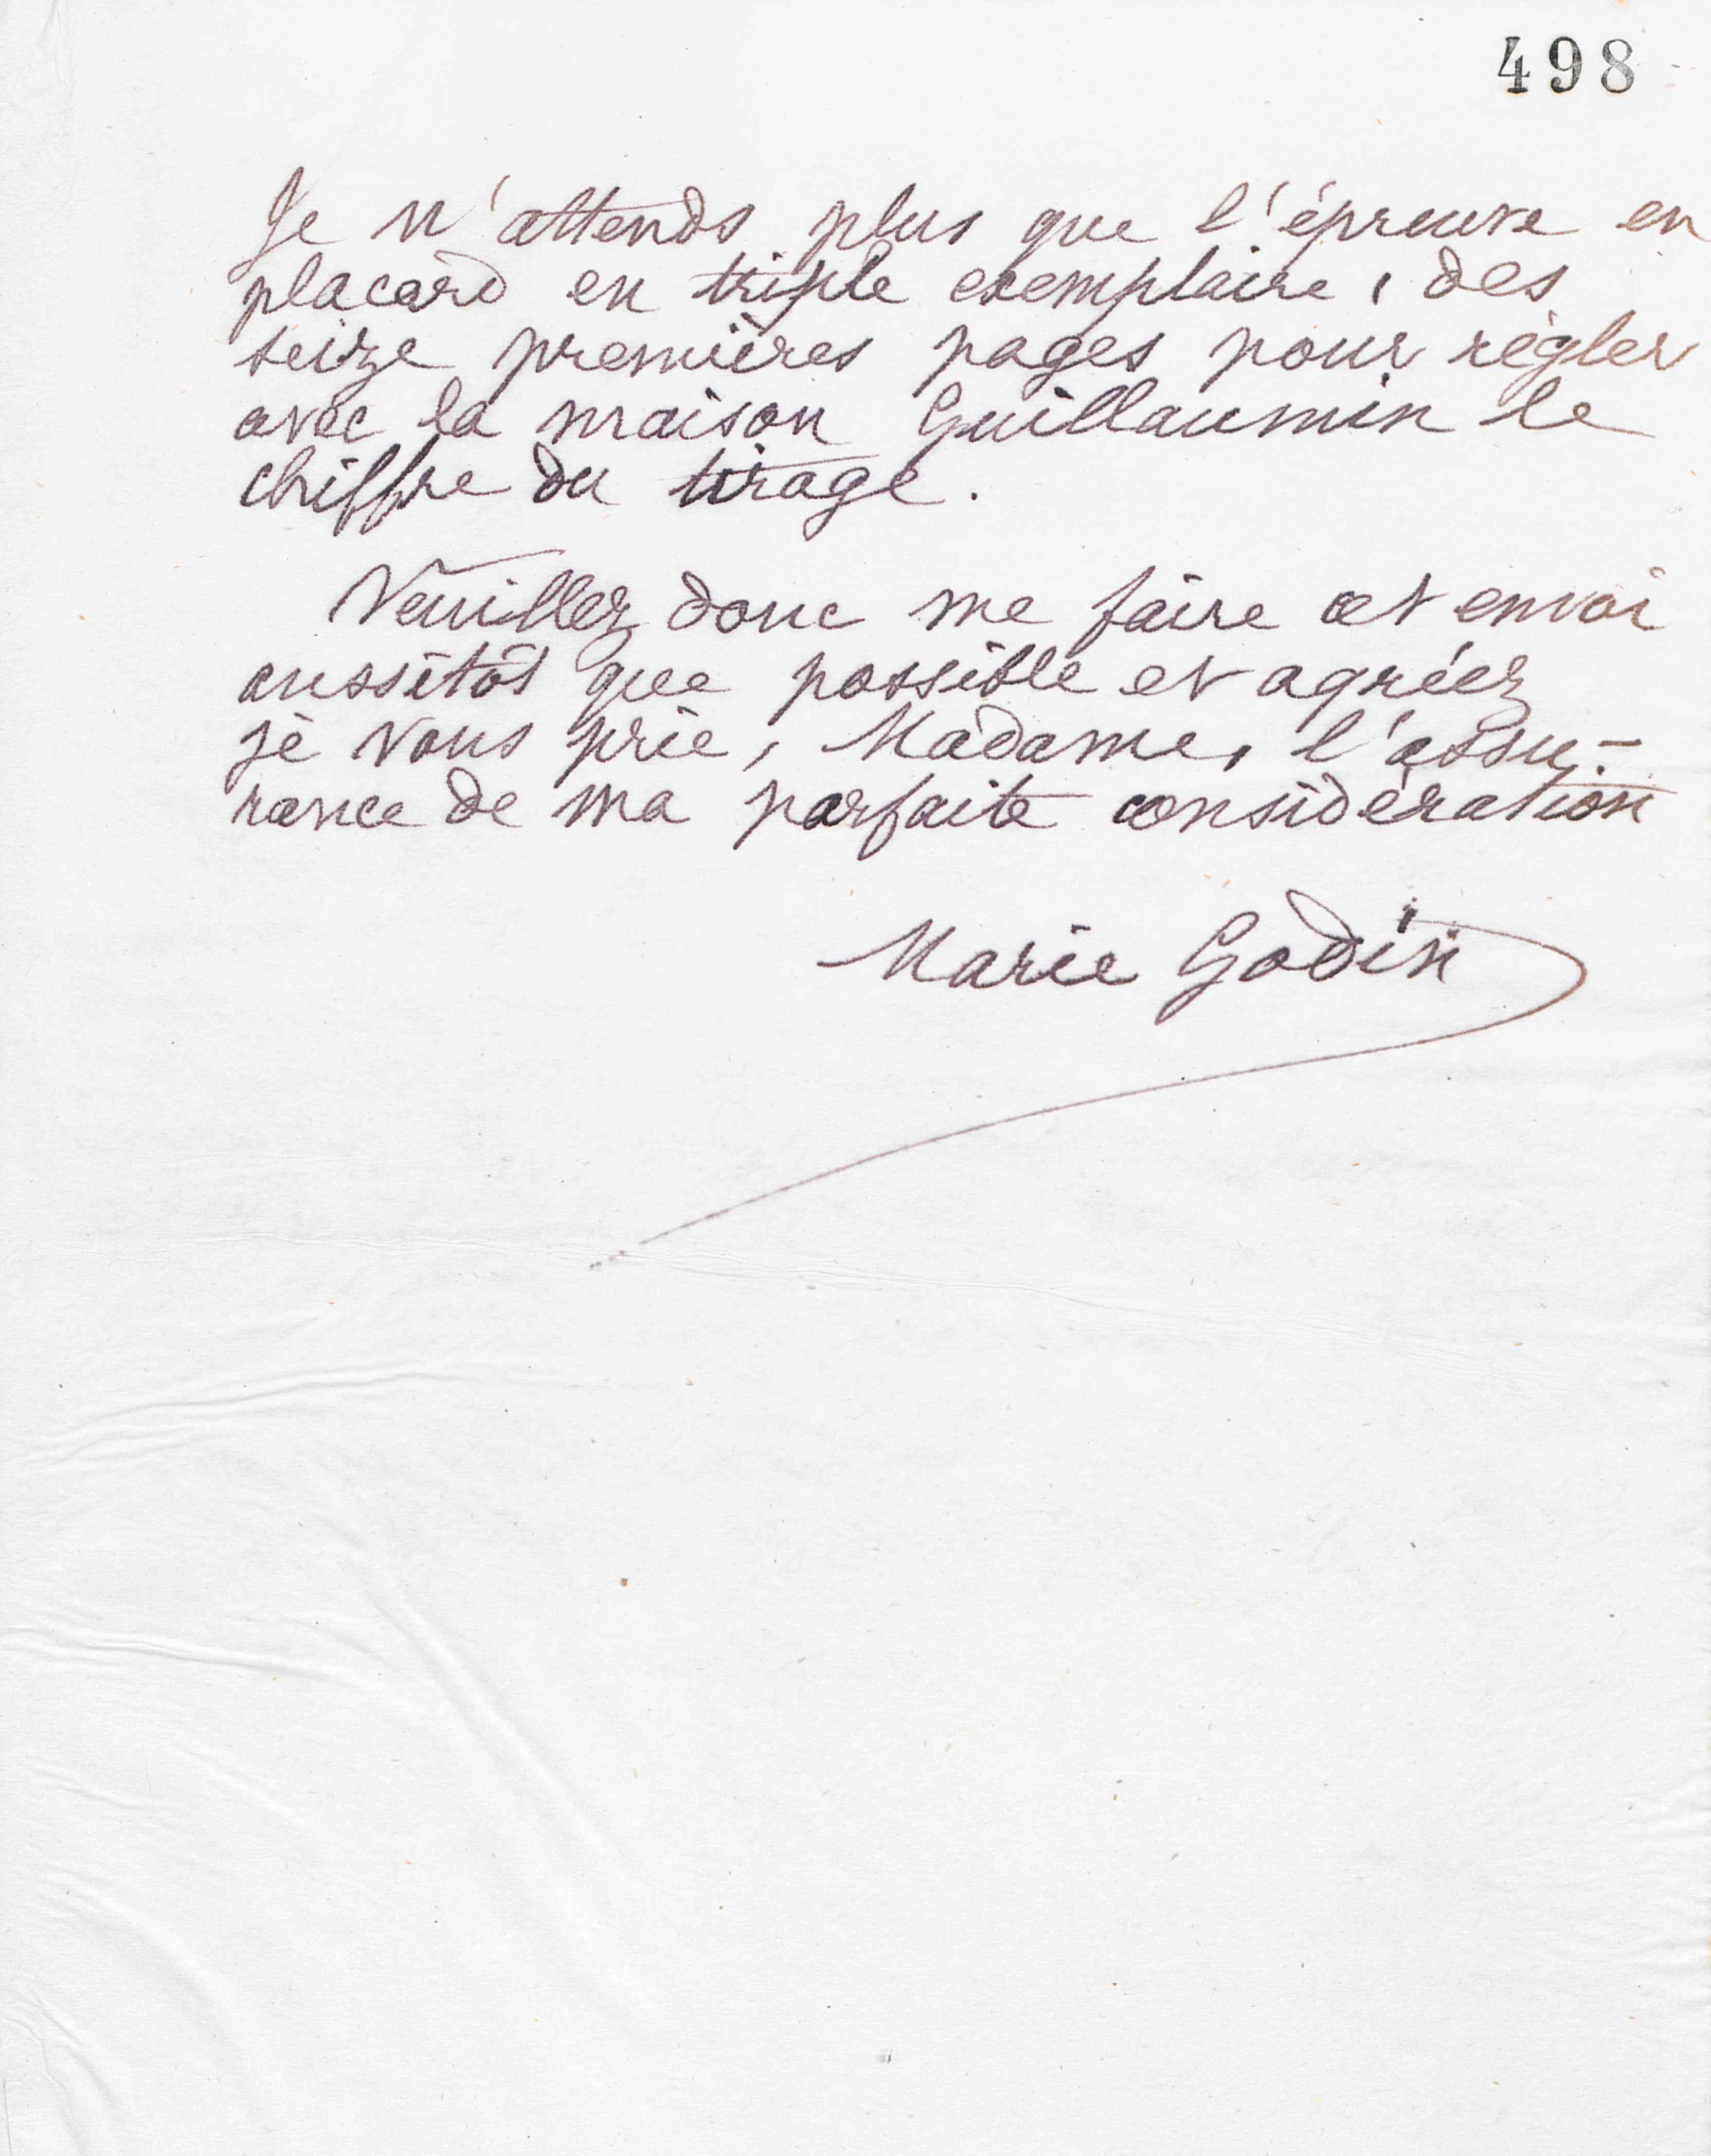 498
Je n'attends plus que l'épreuve en
placard en triple exemplaire, des
seize premières pages pour régler
avec la maison Guillaumin le
chiffre du tirage.
Veuillez donc me faire cet envoi
aussitôt que possible et agréez
je vous prie, Madame, l'assu-
rance de ma parfaite considération
Marie Godin